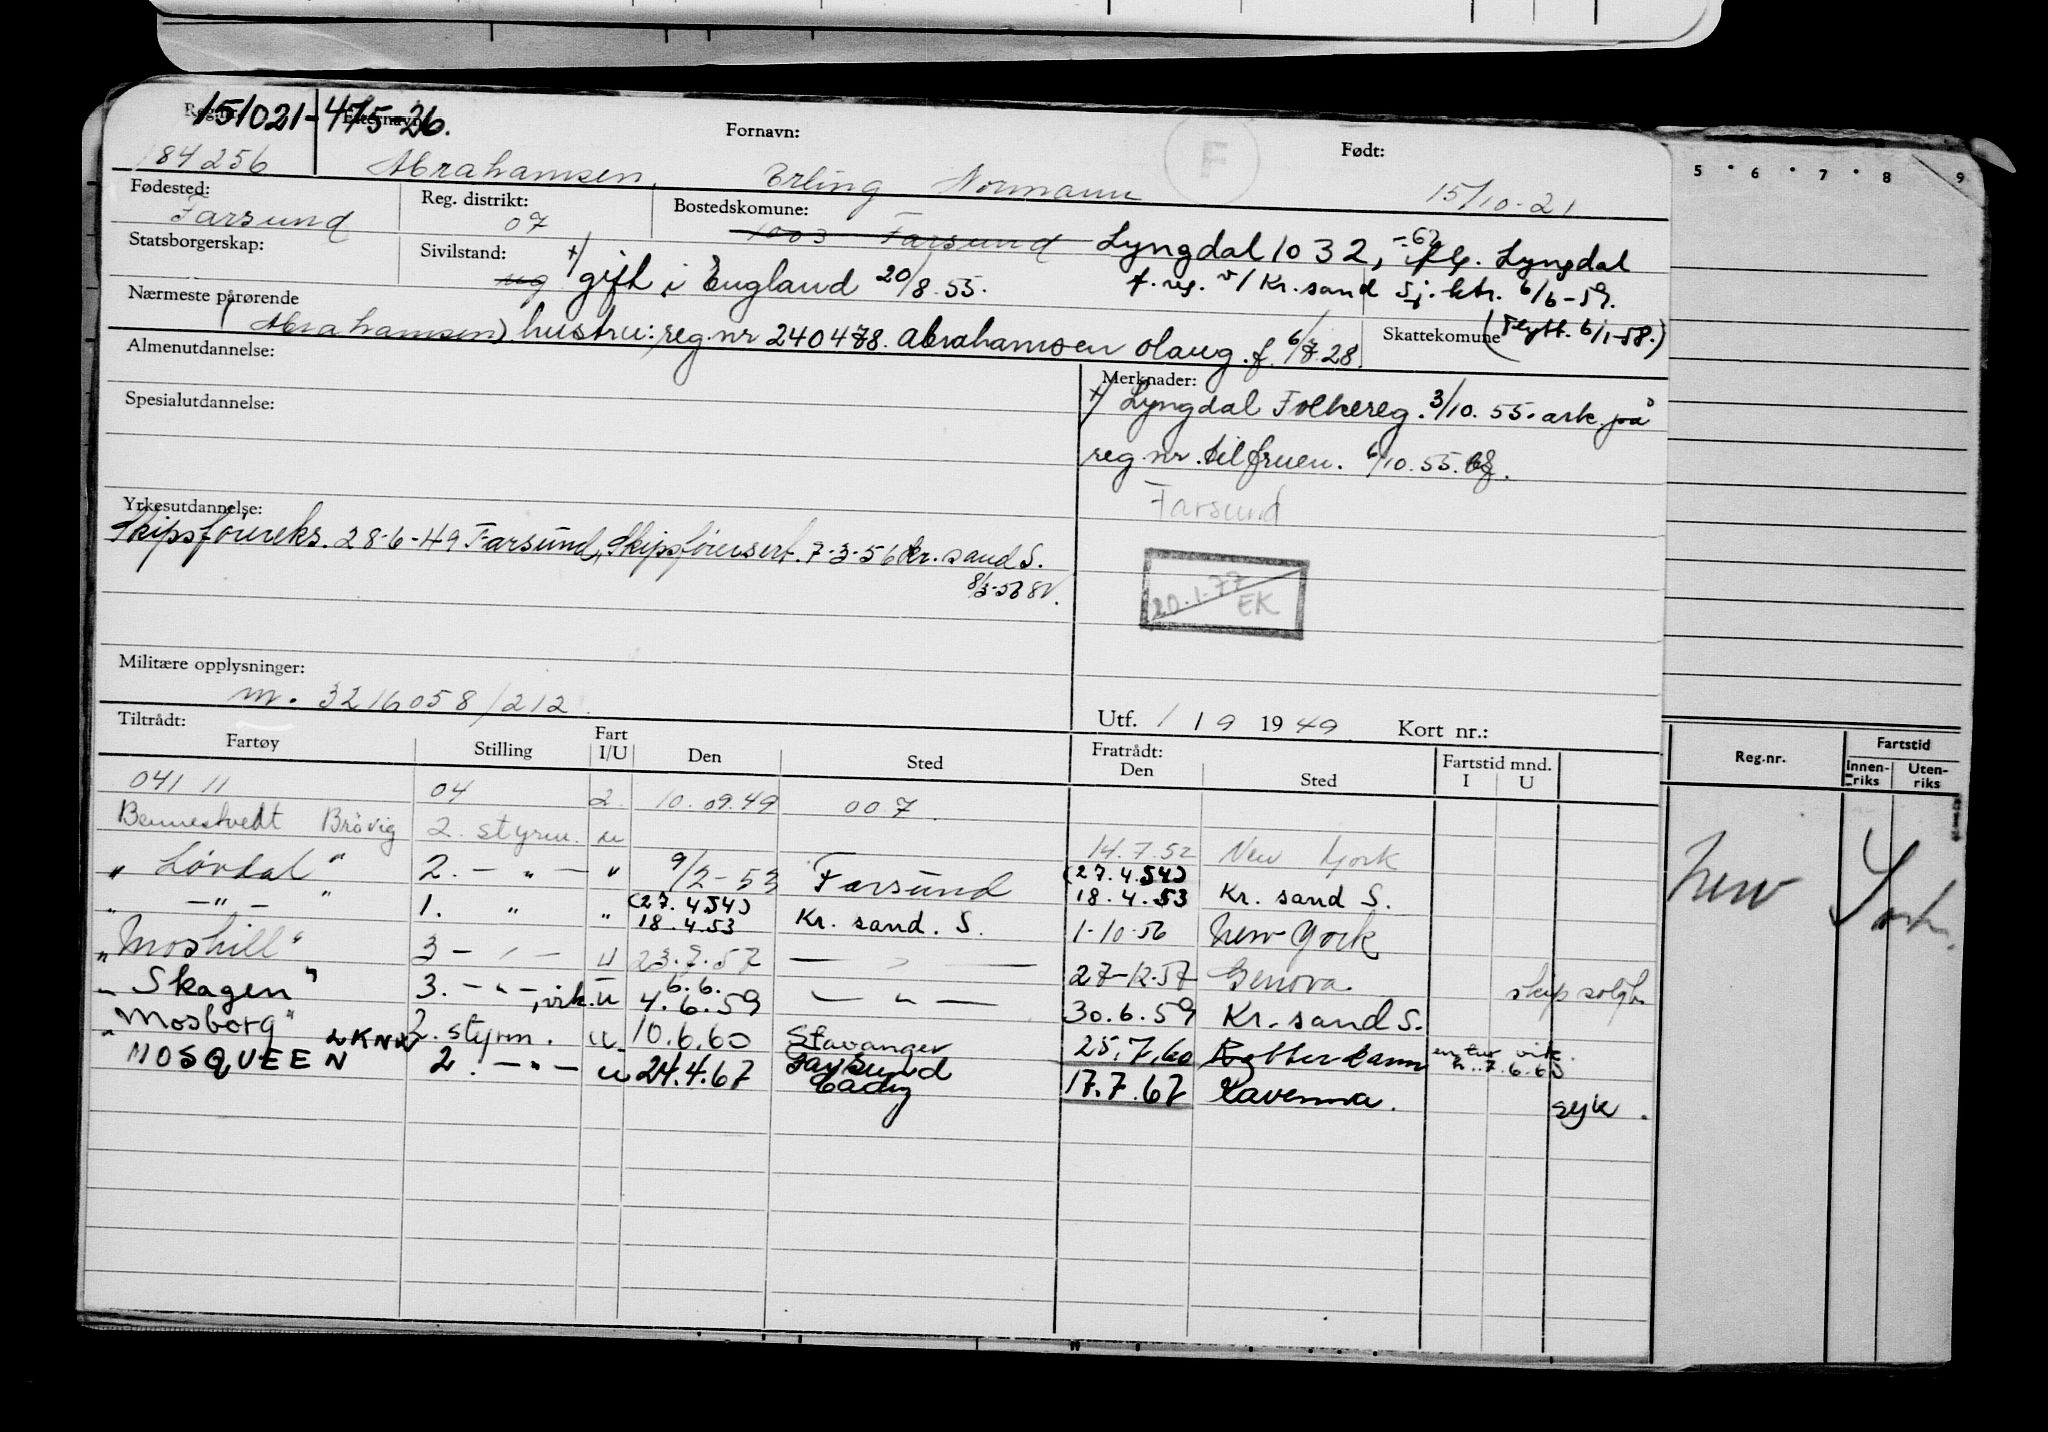 Reg.nr. 151021-475-26. Etternavn: Fornavn: F Født:
184256 Abrahamsen, Erling Normann 15/10-21
Fødested: Farsund Reg. distrikt: 07 Bostedskomune: 1003 Farsund Lyngdal 1032, Lyngdal
Statsborgerskap: Sivilstand: ug +) gift i England 20/8.55. f. reg. v/ Kr.sand Sj.ktr. 6/6-59.
Nærmeste pårørende Skattekomune (Flytt. 6/1-58.)
(Abrahamsen) hustru: reg.nr 240478. Abrahamsen Olaug. f. 6/7.28.
Almenutdannelse: Merknader:
+) Lyngdal Folkereg. 3/10.55. ark. på
Spesialutdannelse:
reg.nr. til fruen. 6/10.55.
Farsund
Yrkesutdannelse:
Skipsførereks. 28-6-49 Farsund, Skipsførersert. 7-3-56 Kr.sand S.
8/3-56
20.1.77 EK
Militære opplysninger:
m. 3216058/212
Utf. 1 / 9 1949 Kort nr.:
Tiltrådt: Fratrådt: Fartstid mnd.
Fartøy Stilling Fart I/U Den Sted Den Sted I U
041 11 04 2. 10.09.49 007
Bennestvedt Brøvig 2. styrm. u 14.7.52 New York
" Lørdal " 2. - " - " 9/2-53 Farsund (27.4.54) 18.4.53 Kr. sand S.
" - " - " 1. " " (27.4.54) 18.4.53 Kr. sand. S. 1-10-56 New York
" Moshill " 3 - " - U 23.7.57 — " — 27-12-57 Genova. skip solgt.
" Skagen " 3. - " -, virk. u 6.6. 4.6.59 — " — 30.6.59 Kr. sand S.
" Mosborg " 2. styrm. u. 10.6.60 Stavanger 25.7.60 Rotterdam en tur
MOSQUEEN LKNW 2. - " - u 24.4.67 Farsund Cadiz 17.7.67 Ravenna. syk.
5 6 7 8 9
Reg.nr. Fartstid
Innen-riks Uten-riks
New York.